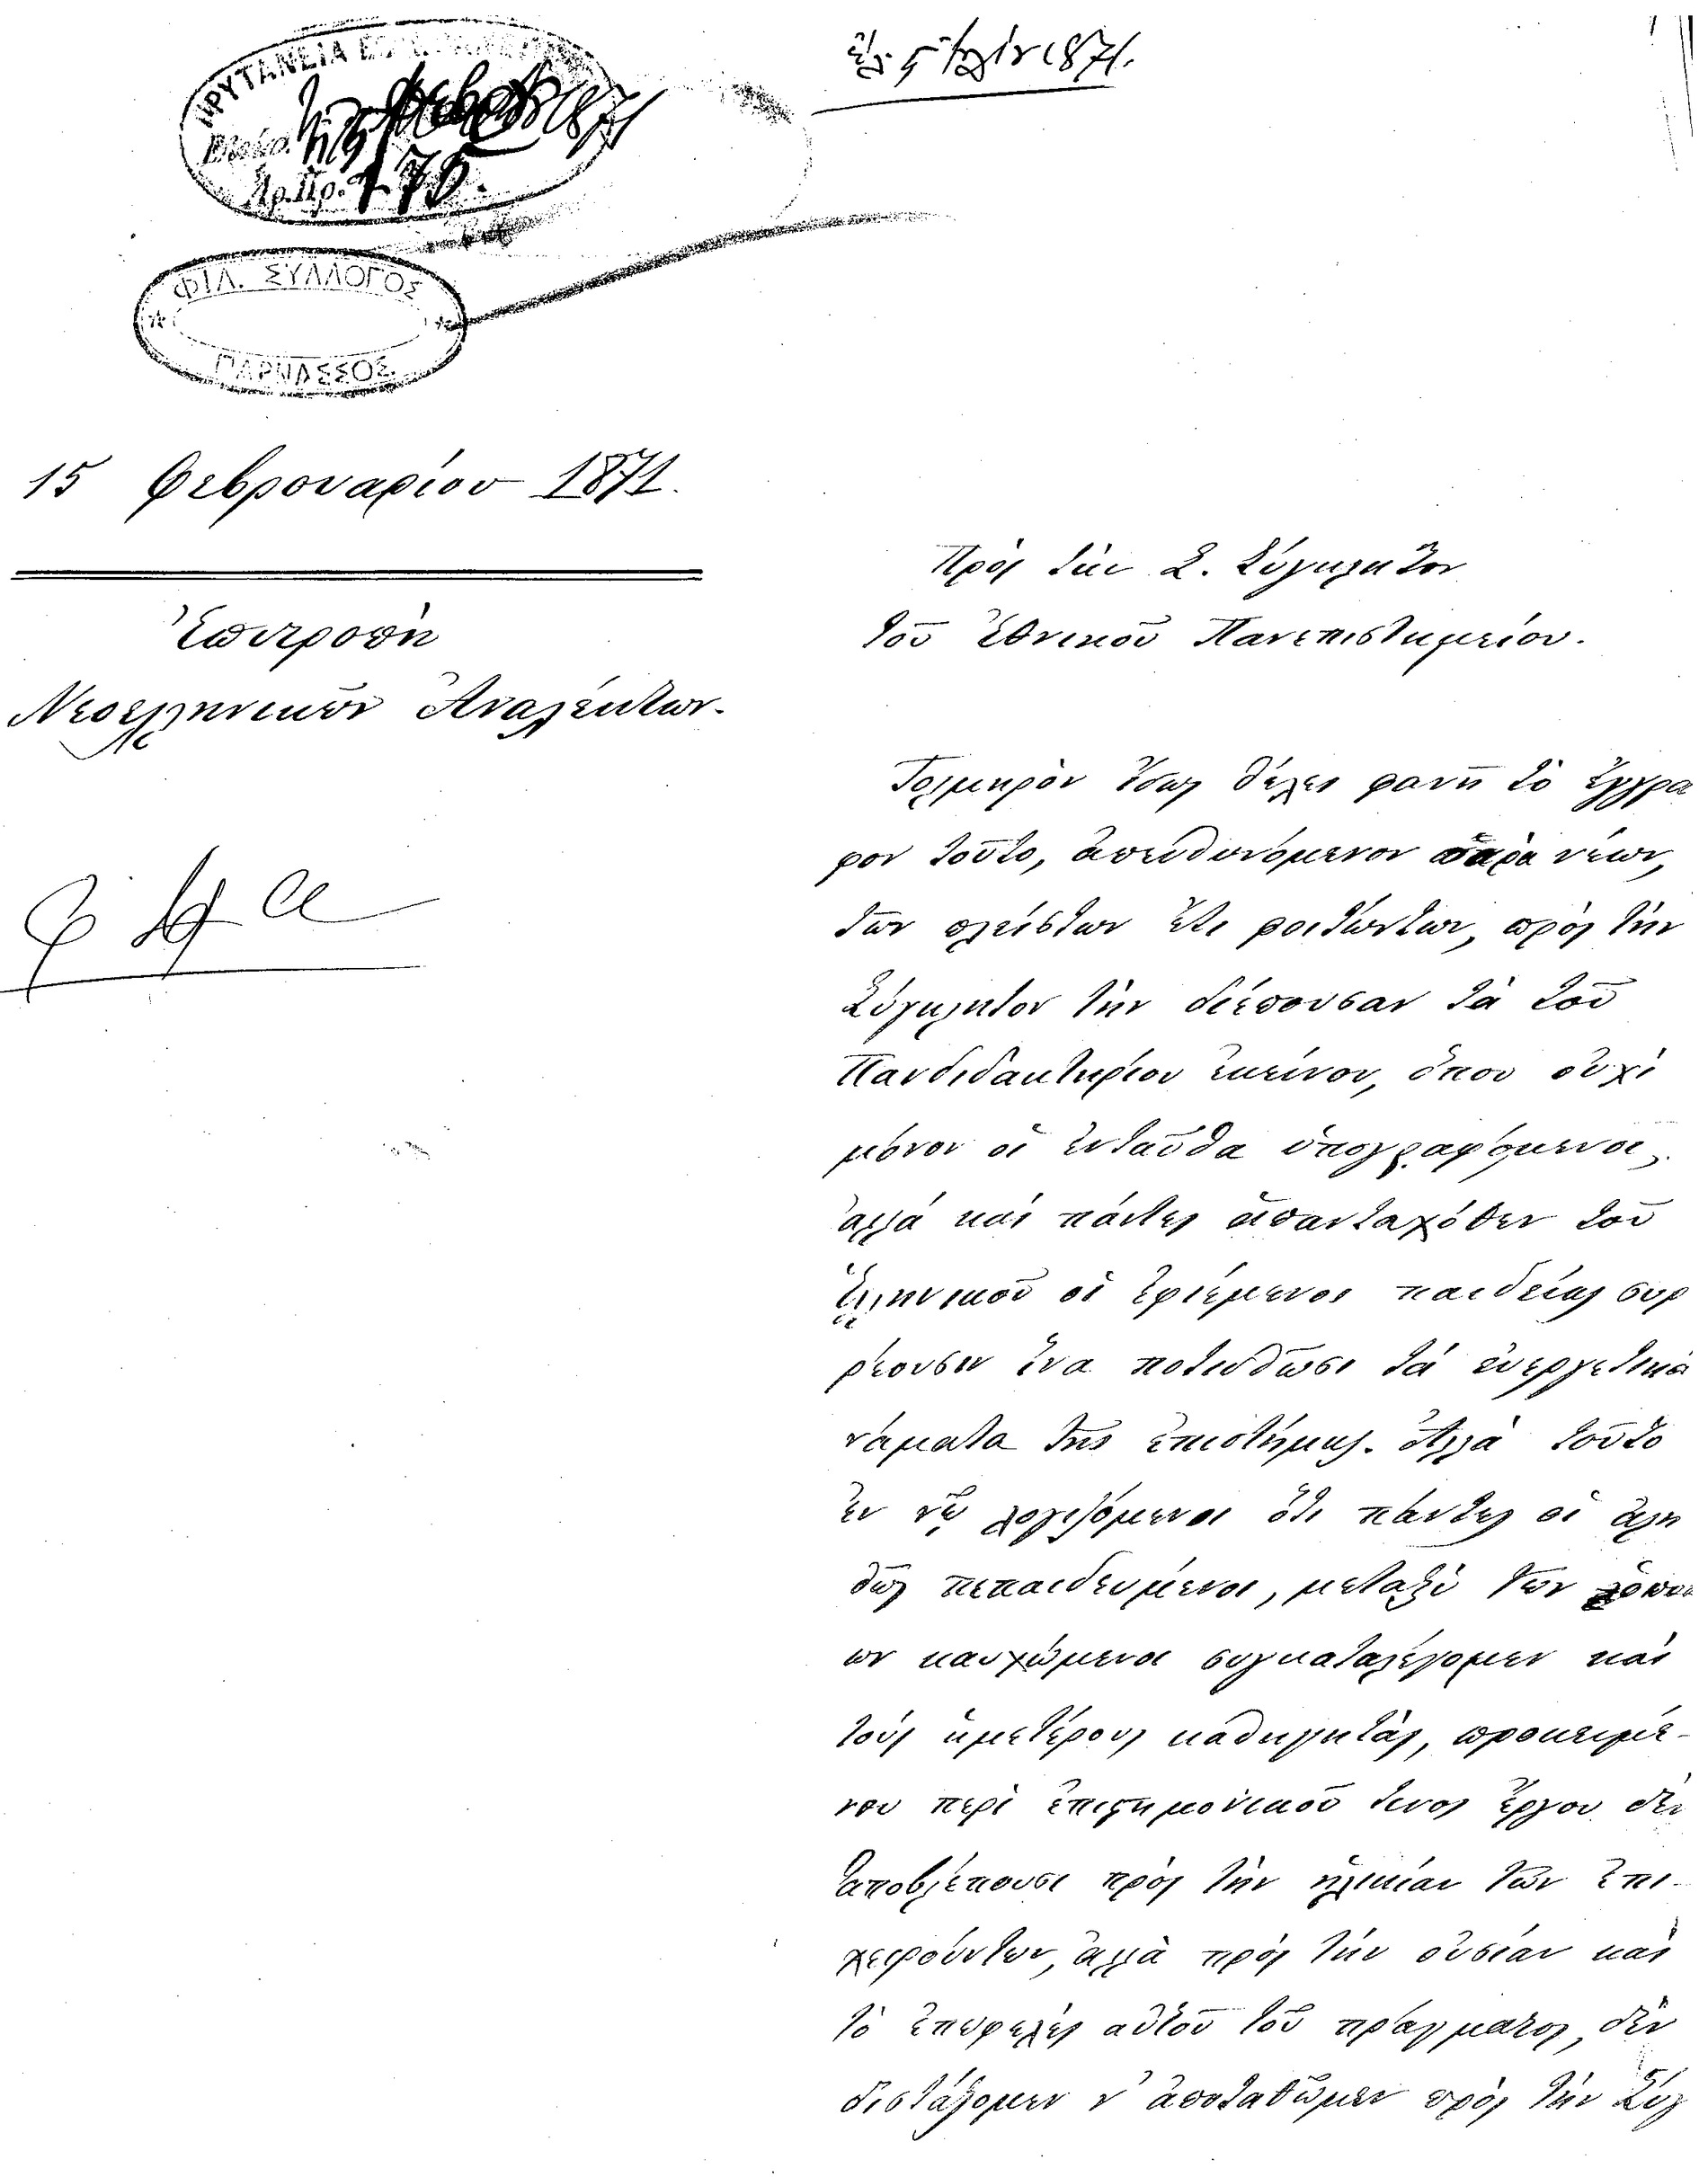 ΠΡΥΤΑΝΕΙΑ
1871
Ἀρ. Πρ. 175.
1871.
ΦΙΛ. ΣΥΛΛΟΓΟΣ
ΠΑΡΝΑΣΣΟΣ
15 Φεβρουαρίου 1871.
Ἐπιτροπὴ
Νεοελληνικῶν Ἀναλέκτων.
Πρὸς τὴν Σ. Σύγκλητον
τοῦ Ἐθνικοῦ Πανεπιστημείου.
Τολμηρὸν ἴσως θέλει φανῆ τὸ ἔγγρα
φον τοῦτο, ἀπευθυνόμενον παρὰ νέων,
τῶν πλείστων ἔτι φοιτώντων, πρὸς τὴν
Σύγκλητον τὴν διέπουσαν τὰ τοῦ
Πανδιδακτηρίου ἐκείνου, ὅπου οὐχὶ
μόνον οἱ ἐνταῦθα ὑπογραφόμενοι,
ἀλλὰ καὶ πάντες ἁπανταχόθεν τοῦ
ἑλληνικοῦ οἱ ἐφιέμενοι παιδείας συρ
ρέουσιν ἵνα ποτισθῶσι τὰ εὐεργετικὰ
νάματα τῆς ἐπιστήμης. Ἀλλὰ τοῦτο
ἐν νῷ λογιζόμενοι ὅτι πάντες οἱ ἀλη
θῶς πεπαιδευμένοι, μεταξὺ τῶν ὁποί
ων καυχώμενοι συγκαταλέγομεν καὶ
τοὺς ἡμετέρους καθηγητάς, προκειμέ-
νου περὶ ἐπιστημονικοῦ τινος ἔργου δὲν
ἀποβλέπουσι πρὸς τὴν ἡλικίαν τῶν ἐπι-
χειρούντων, ἀλλὰ πρὸς τὴν οὐσίαν καὶ
τὸ ἐπωφελὲς αὐτοῦ τοῦ πράγματος, δὲν
διστάζομεν ν' ἀποταθῶμεν πρὸς τὴν Σύγ